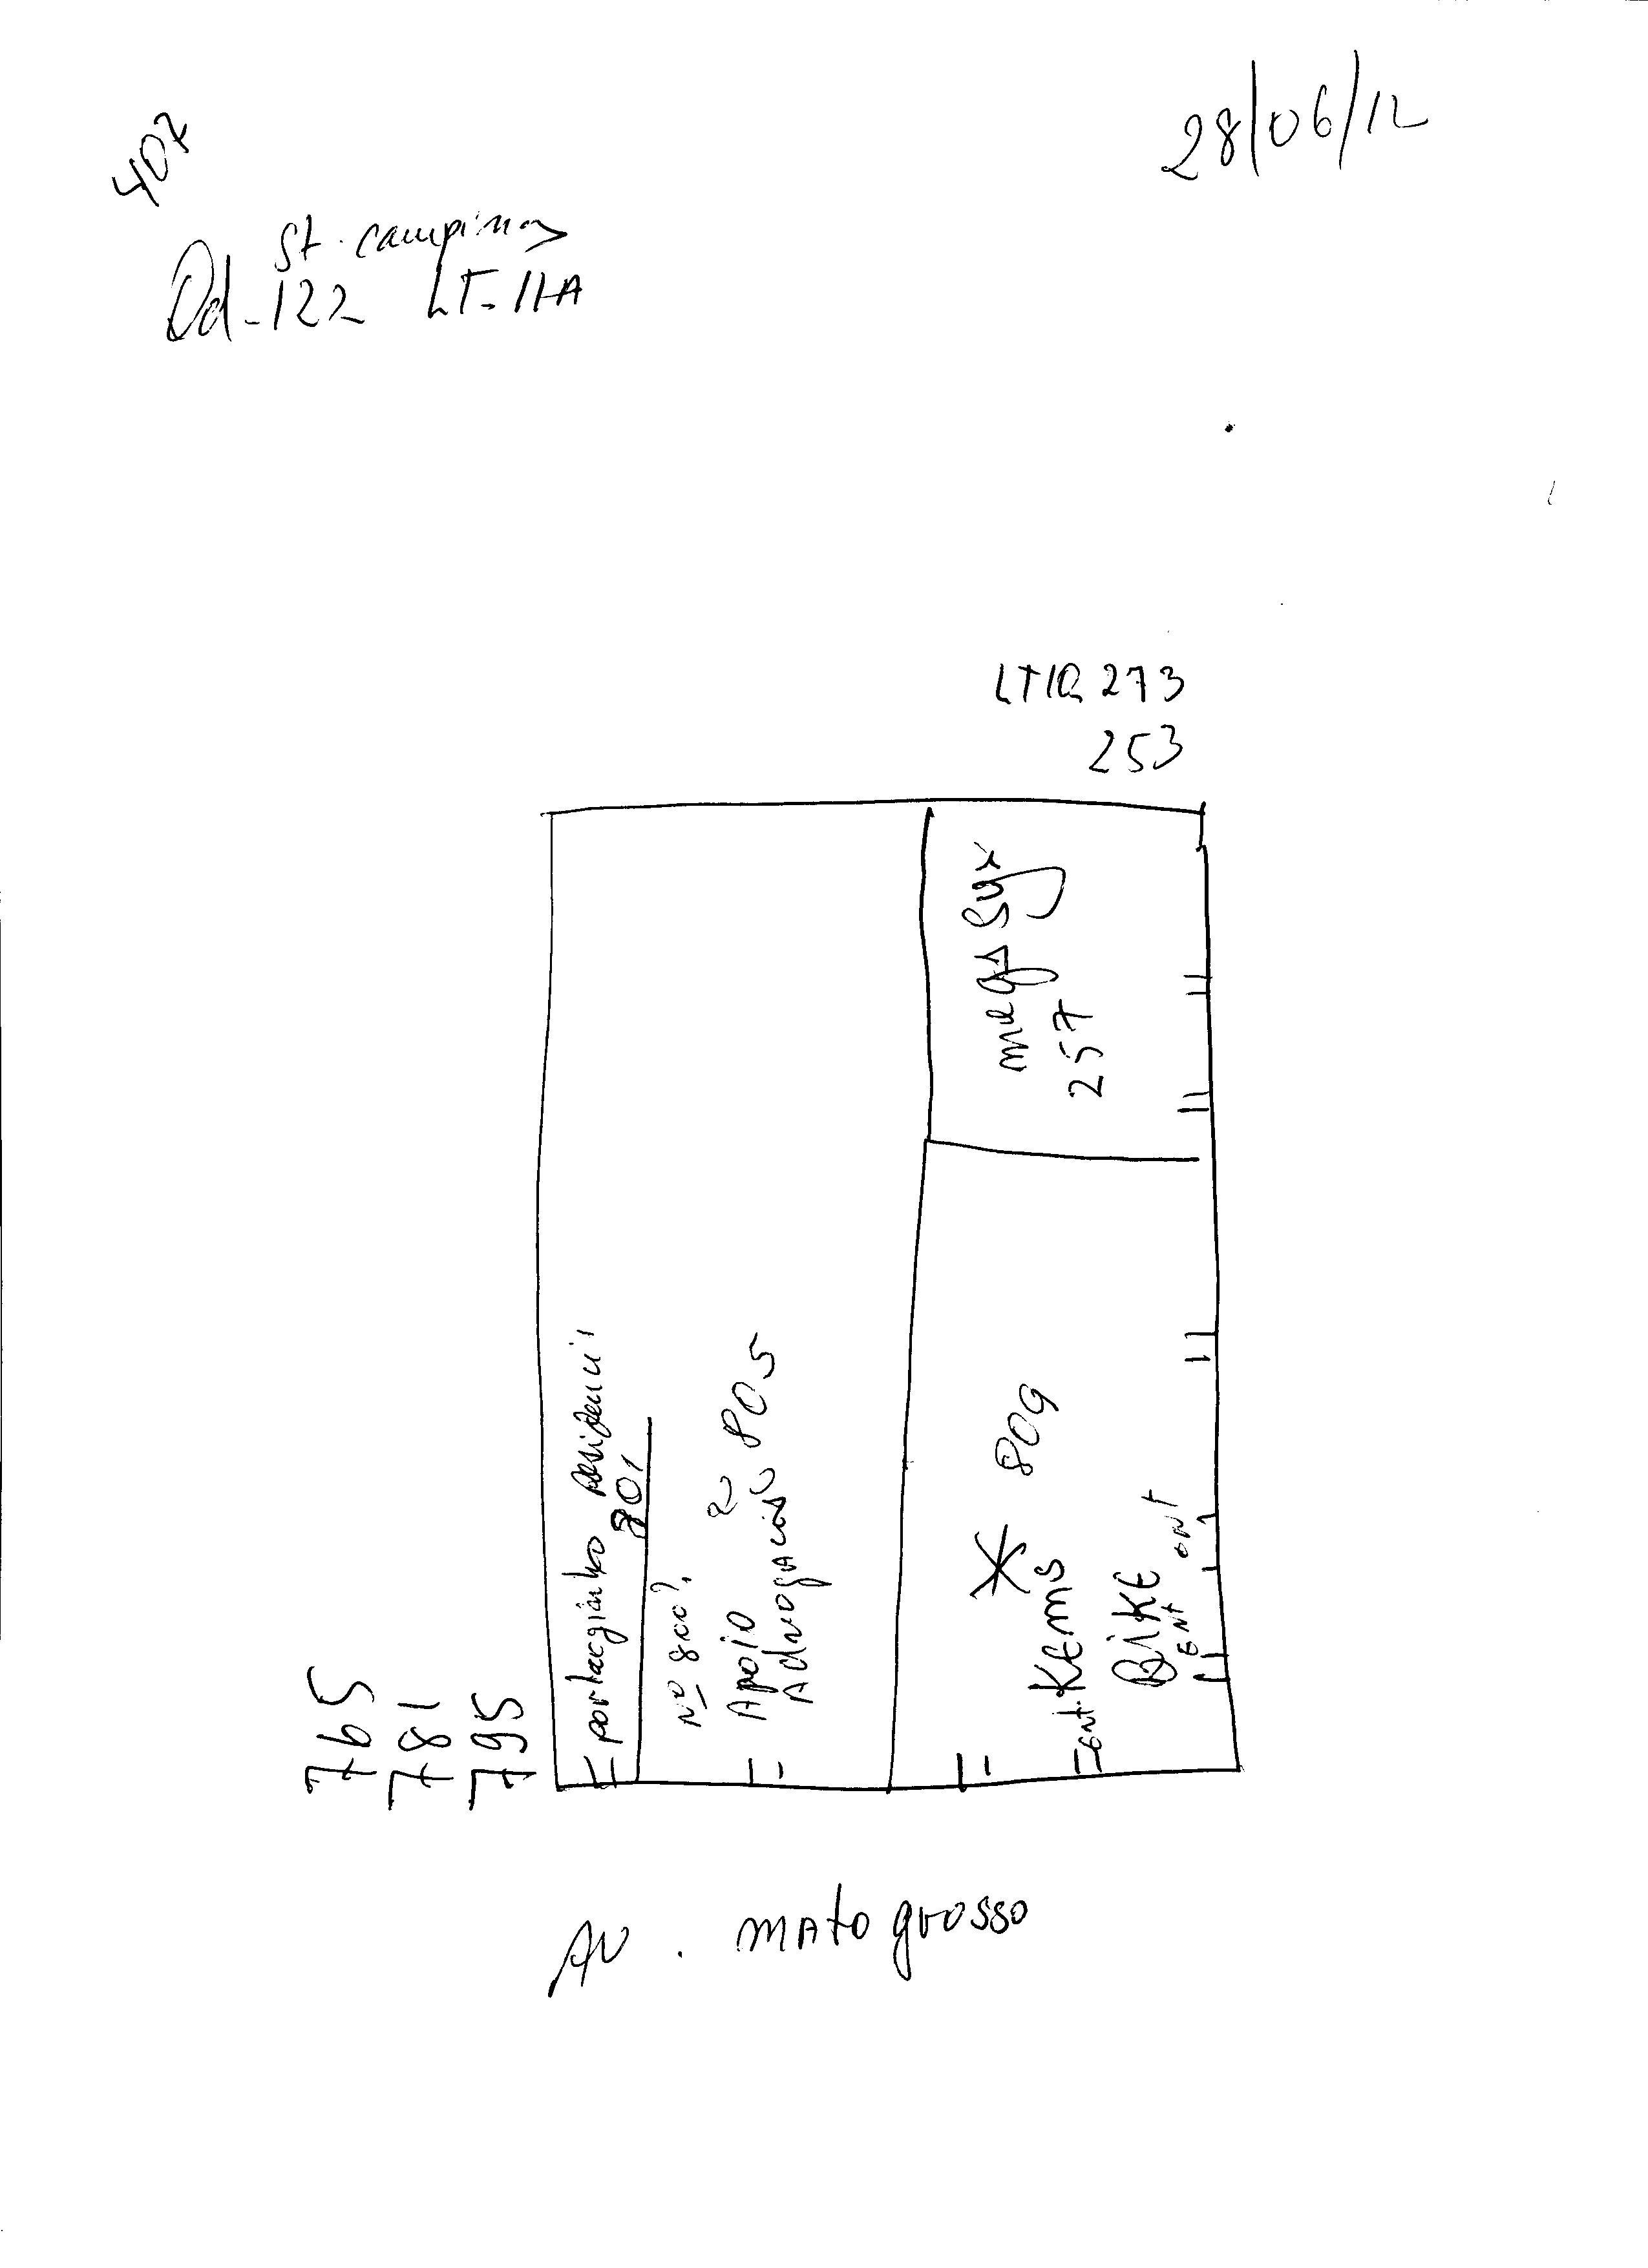 407
28/06/12
St. campinas
Qd-122 LT-11A
LT10 273
253
mega
257
765
781
795
portaozinho
801
Nº 800?
Apoio
Advogacia 805
809
ent. Kems
Bike
ent
ent
AV. mato grosso